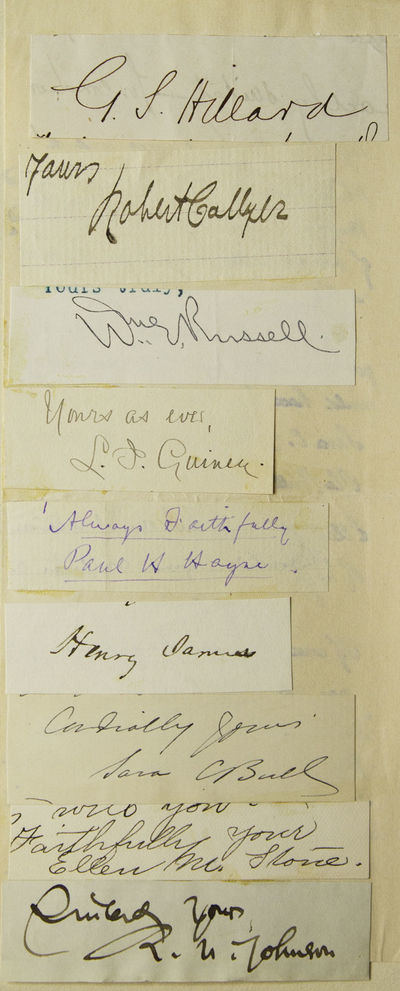 G. S. Hillard
Yours
Robert Collyer
Yours truly,
Wm. E. Russell.
Yours as ever,
L. I. Guiney.
Always Faithfully
Paul H Hayne.
Henry James
Cordially yours
Sara C Bull
who you
Faithfully your
Ellen M. Stone.
Yours
R. U. Johnson